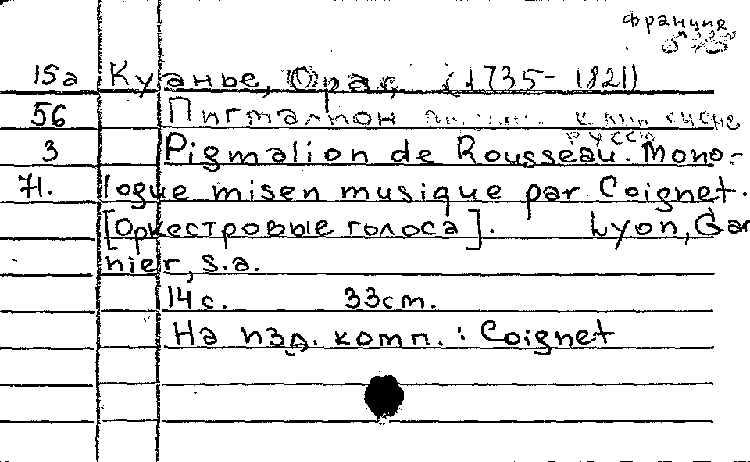 француне
15а Куанье, Орас (1735-1821)
56 Пигмалион к сцене
Руссо
3 Pigmalion de Rousseau. Mono-
71. logue mis en musique par Coignet.
[Оркестровые голоса]. Lyon, Gar
nier, s.a.
14 с. 33 cm.
На изд. комп.: Coignet